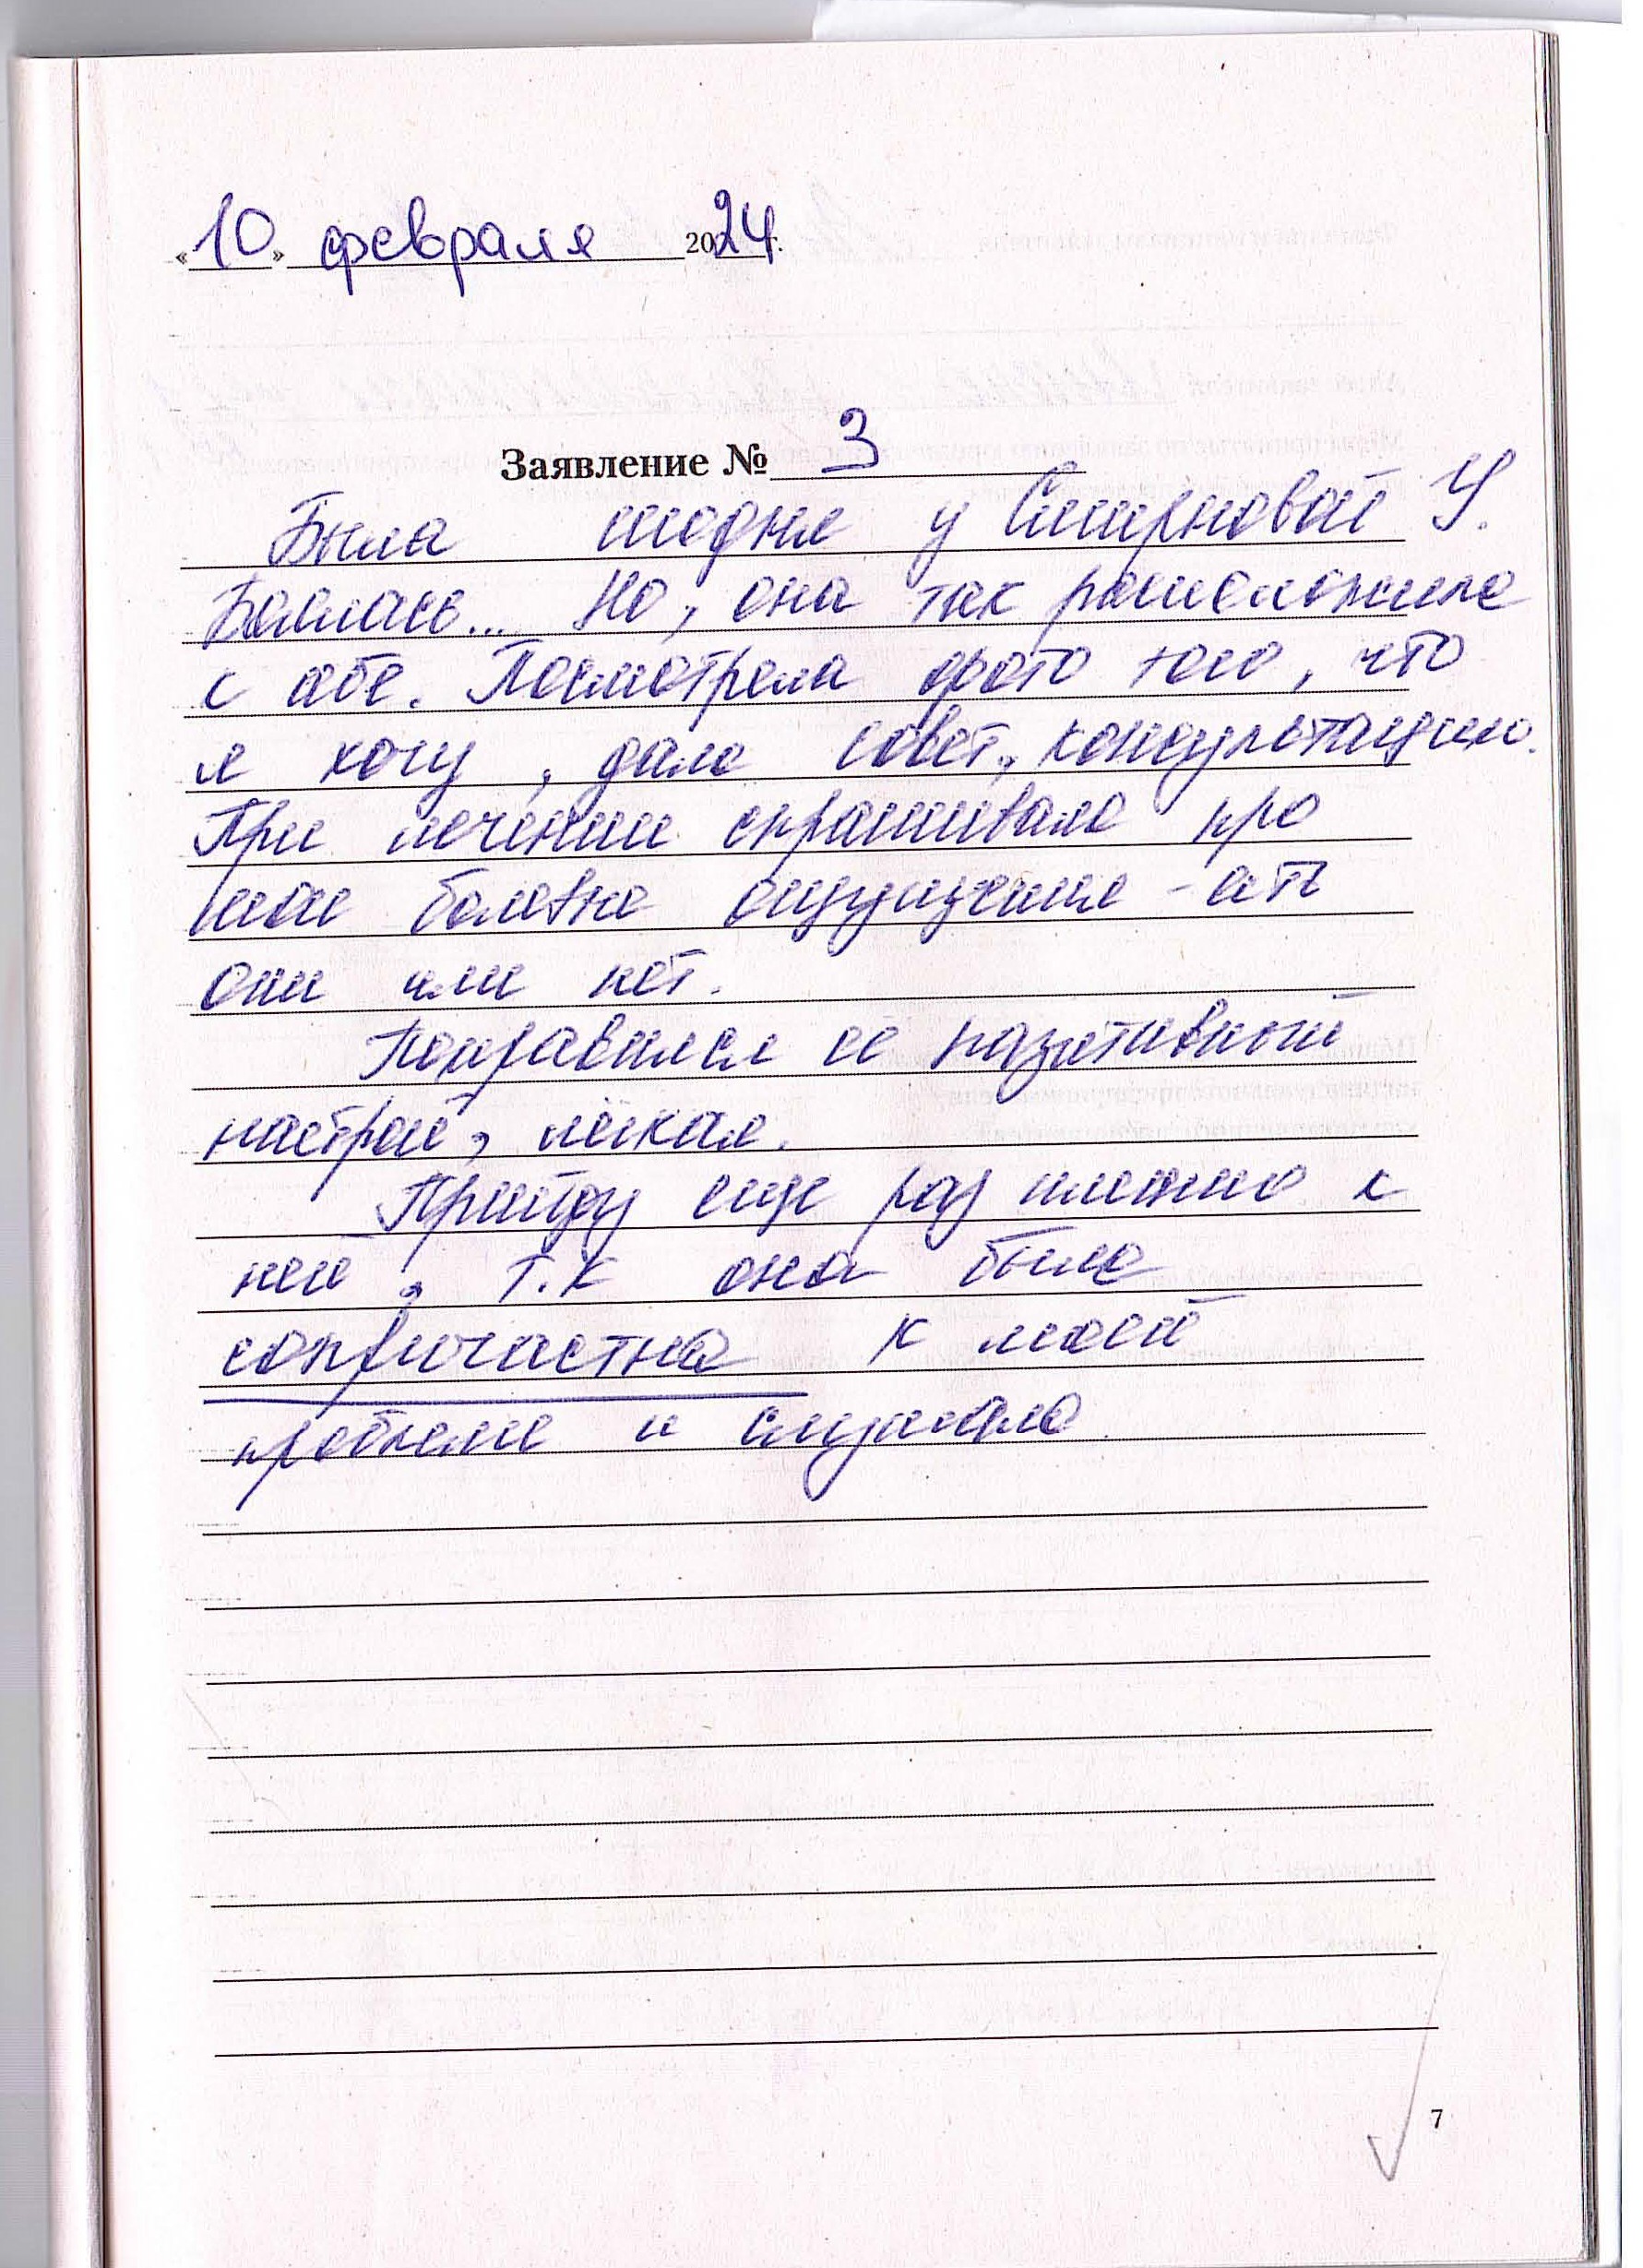 «10» февраля 2024 г.
Заявление № 3
Была сегодня у Смирновой У.
Боялась... Но, она так расположила
к себе. Посмотрела фото того, что
я хочу, дала совет, консультацию.
При лечении спрашивала про
мои болевые ощущения - есть
они или нет.
Понравился её позитивный
настрой, лёгкая.
Прийду еще раз именно к
ней, т.к она была
сопричастна к моей
проблеме и слушала
7